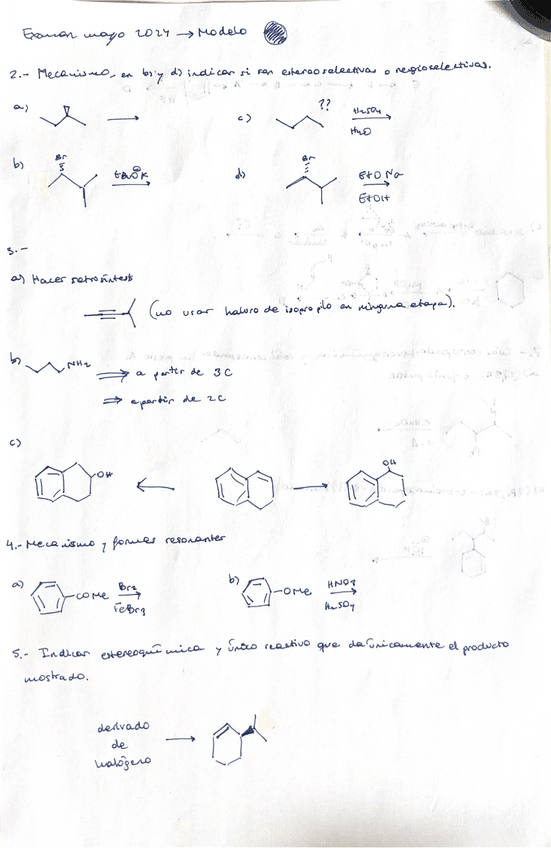 Examen mayo 2024 → Modelo
2.- Mecanismo, en b) y d) indicar si son estereoselectivas o regioselectivas.
a)
c) ?? H₂SO₄
H₂O
b) Br
d) Br EtO Na
EtOH
3.-
a) Hacer retrosíntesis
(no usar haluro de isopropilo en ninguna etapa).
b) NH₂ ⇒ a partir de 3C
⇒ a partir de 2C
c)
OH OH
4.- Mecanismo y formas resonantes
a) COMe Br₂
FeBr₃
b) OMe HNO₃
H₂SO₄
5.- Indicar estereoquímica y único reactivo que da únicamente el producto
mostrado.
derivado
de
halógeno